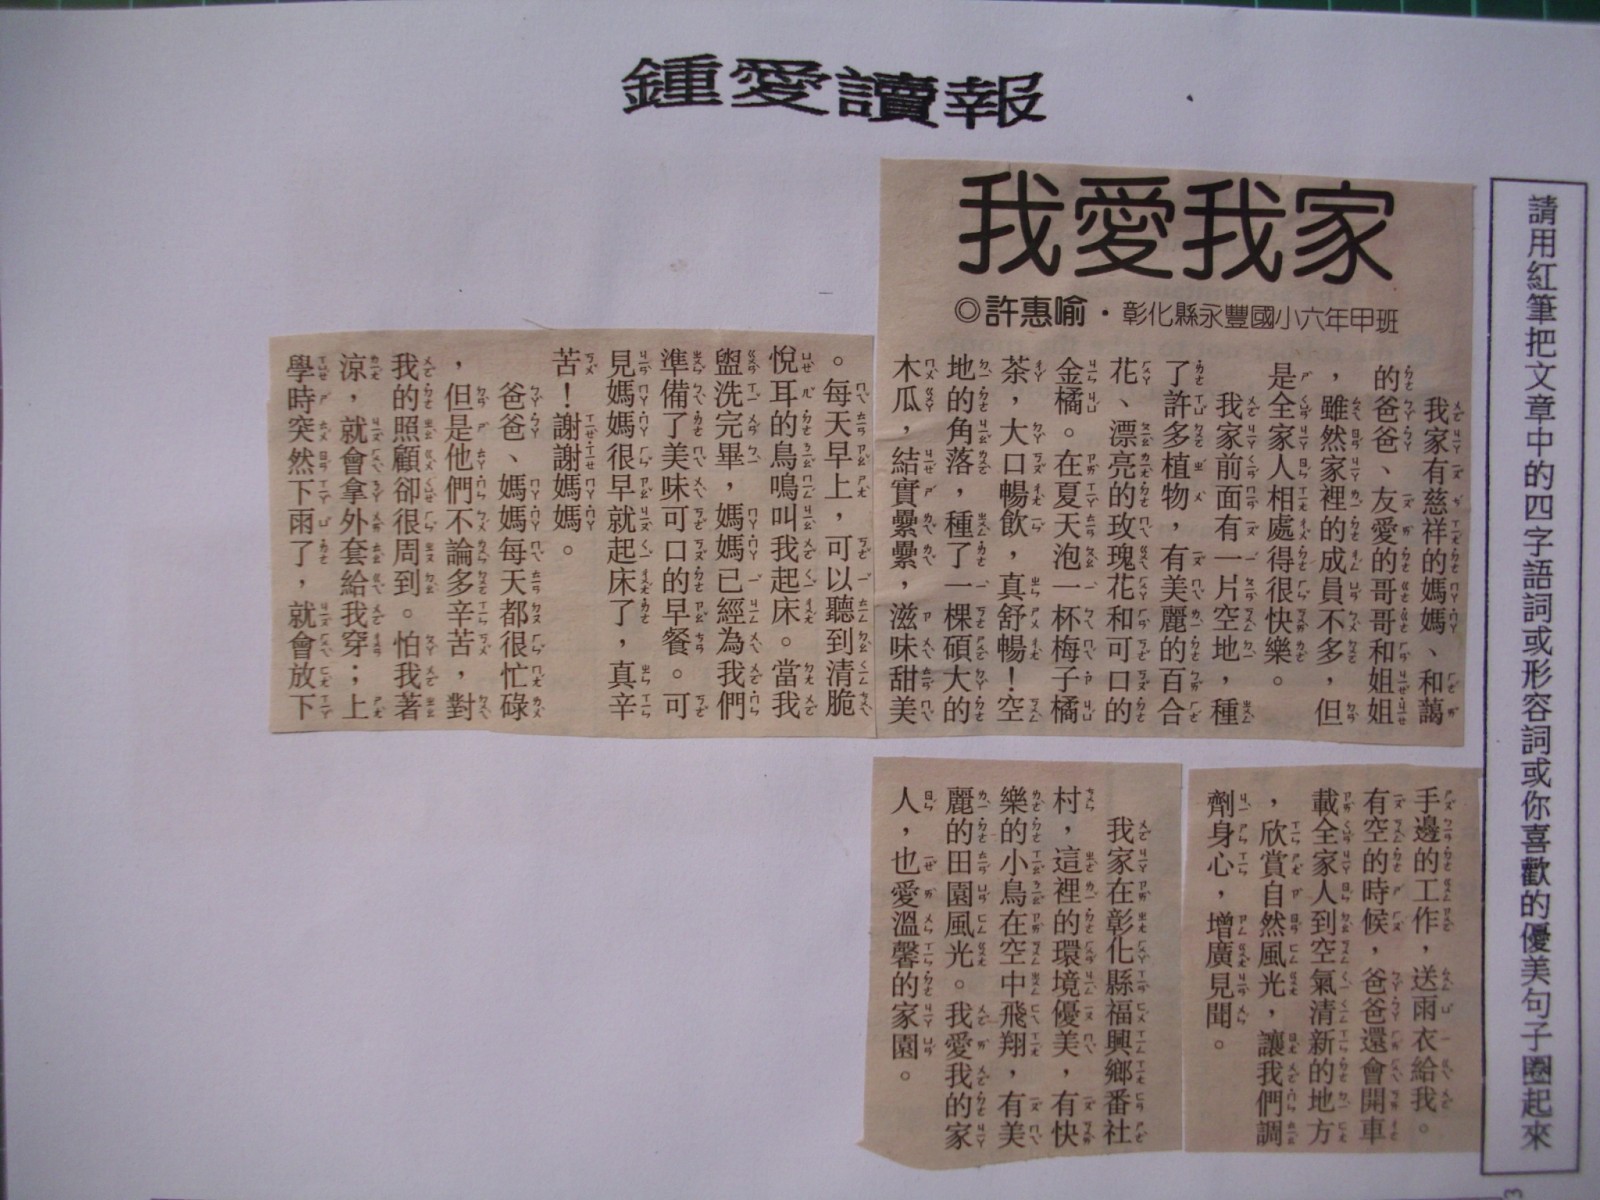 鍾愛讀報
請用紅筆把文章中的四字語詞或形容詞或你喜歡的優美句子圈起來
我愛我家
◎許惠喻・彰化縣永豐國小六年甲班
我家有慈祥的媽媽、和藹
的爸爸、友愛的哥哥和姐姐
，雖然家裡的成員不多，但
是全家人相處得很快樂。
我家前面有一片空地，種
了許多植物，有美麗的百合
花、漂亮的玫瑰花和可口的
金橘。在夏天泡一杯梅子橘
茶，大口暢飲，真舒暢！空
地的角落，種了一棵碩大的
木瓜，結實纍纍，滋味甜美
。每天早上，可以聽到清脆
悅耳的鳥鳴叫我起床。當我
盥洗完畢，媽媽已經為我們
準備了美味可口的早餐。可
見媽媽很早就起床了，真辛
苦！謝謝媽媽。
爸爸、媽媽每天都很忙碌
，但是他們不論多辛苦，對
我的照顧卻很周到。怕我著
涼，就會拿外套給我穿；上
學時突然下雨了，就會放下
手邊的工作，送雨衣給我。
有空的時候，爸爸還會開車
載全家人到空氣清新的地方
，欣賞自然風光，讓我們調
劑身心，增廣見聞。
我家在彰化縣福興鄉番社
村，這裡的環境優美，有快
樂的小鳥在空中飛翔，有美
麗的田園風光。我愛我的家
人，也愛溫馨的家園。
3